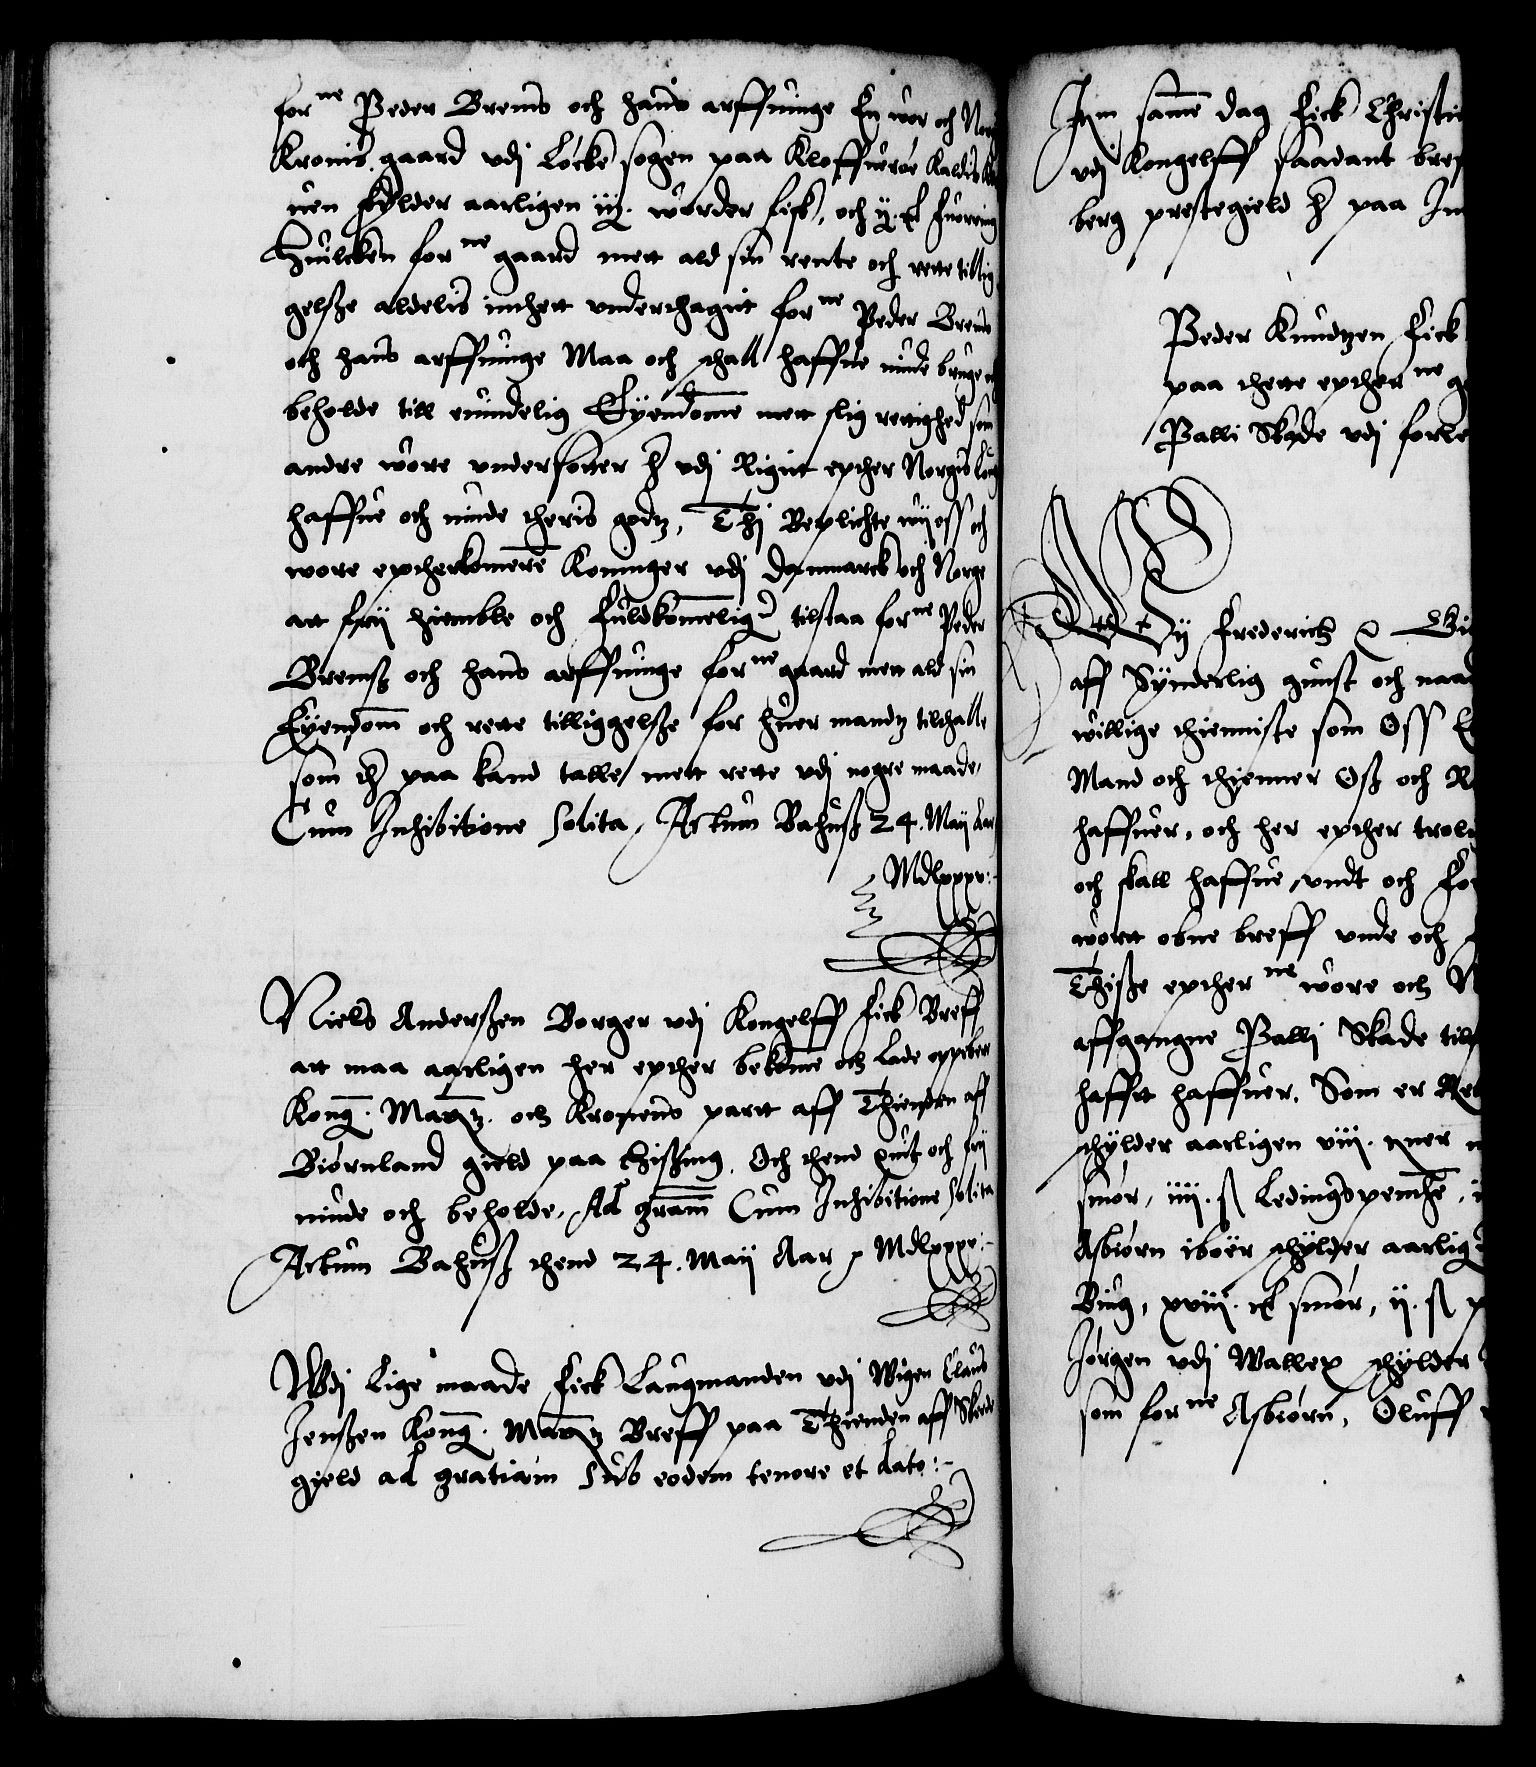 forne Peder Brems och hans arffuinge En wor och Norg
Kronis gaard vdj Locke sogen paa Kloffuerøe Kaldis
uen skylder aarligen iij. worder fisk, och ij.
Huilcken forne gaard mett ald sin rente och rette tillig
gelsze aldelis inthett vnderthagit forne Peder Brems
och hans arffuinge Maa och schall haffue niude bruge
beholde till euindelig Eÿendome mett slig rettighed som
andre wore vndersotter vdj Rigitt epther Norges Loug
haffue och niude theris godz, Thj Beplichte wij oss och
wore epterkomere Koninger vdj Danmarck och Norge
att frij hiemble och fuldkomelig tilstaa forne Peder
Bremsz och hans arffuinge forne gaard mett ald sin
Eÿendom och rette tilliggelsze for huer mandz tilthalle
som paa kand talle mett rette vdj nogre maade,
Cum Inhibitione Solita, Actum Bahusz 24. Maij Aar
Mdlxxxv:-
Niels Anderszen Borger vdj Kongelff fick Breff
att maa aarligen her epther bekome och lade oppeber
Kong. Matz. och Kronens partt aff Thienden aff
Biørnland gield paa Hiszing. Och thend quitz och frij
niude och beholde, Ad gram Cum Inhibitione Solita
Actum Bahusz thend 24. Maij Aar Mdlxxxv:-
Wdj Lige maade fick Laugmanden vdj Wigen Claus
Jenszen Kong. Matz Breff paa Thienden aff Skeede
gield ad gratiam Sub eodem tenore et dato:-
Item same dag fick Christi
vdj Kongelff saadant bre
berg prestegield paa
Peder Knudtzen fick
paa thette epther ne g
Palli Skade vdj forle
Wÿ Frederich
aff Sÿnderlig gunst och naad
willige thienniste som Oss
Mand och thienner Osz och R
haffuer, och her epther trol
och skall haffue, vndt och for
wortt obne breff vnde och
Thisze epther ne wore och
affgangne Palli Skade till
hafft haffuer. Som er
schÿlder aarligen viij.
smør, iiij. Ledingspenthe,
Asbiørn iboër schÿlder aarlig
Biug, xviij. smør, ij.
Jørgen vdj Wallex schÿlder
som forne Asbiørn, Oluff